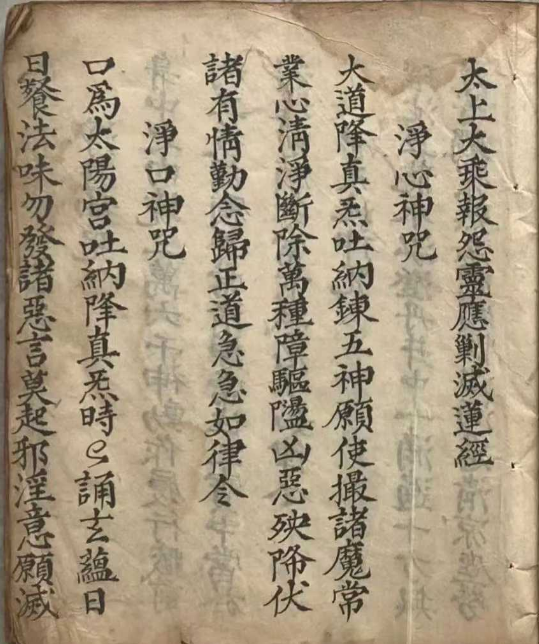 太上大乘報怨靈應剿滅蓮經
淨心神咒
大道降真炁吐納鍊五神願使撮諸魔常
業心清淨斷除萬種障驅隘凶惡殃降伏
諸有情勤念歸正道急急如律令
淨口神咒
口為太陽宮吐納降真炁時〻誦玄蘊日
日餐法味勿發諸惡言莫起邪淫意願滅